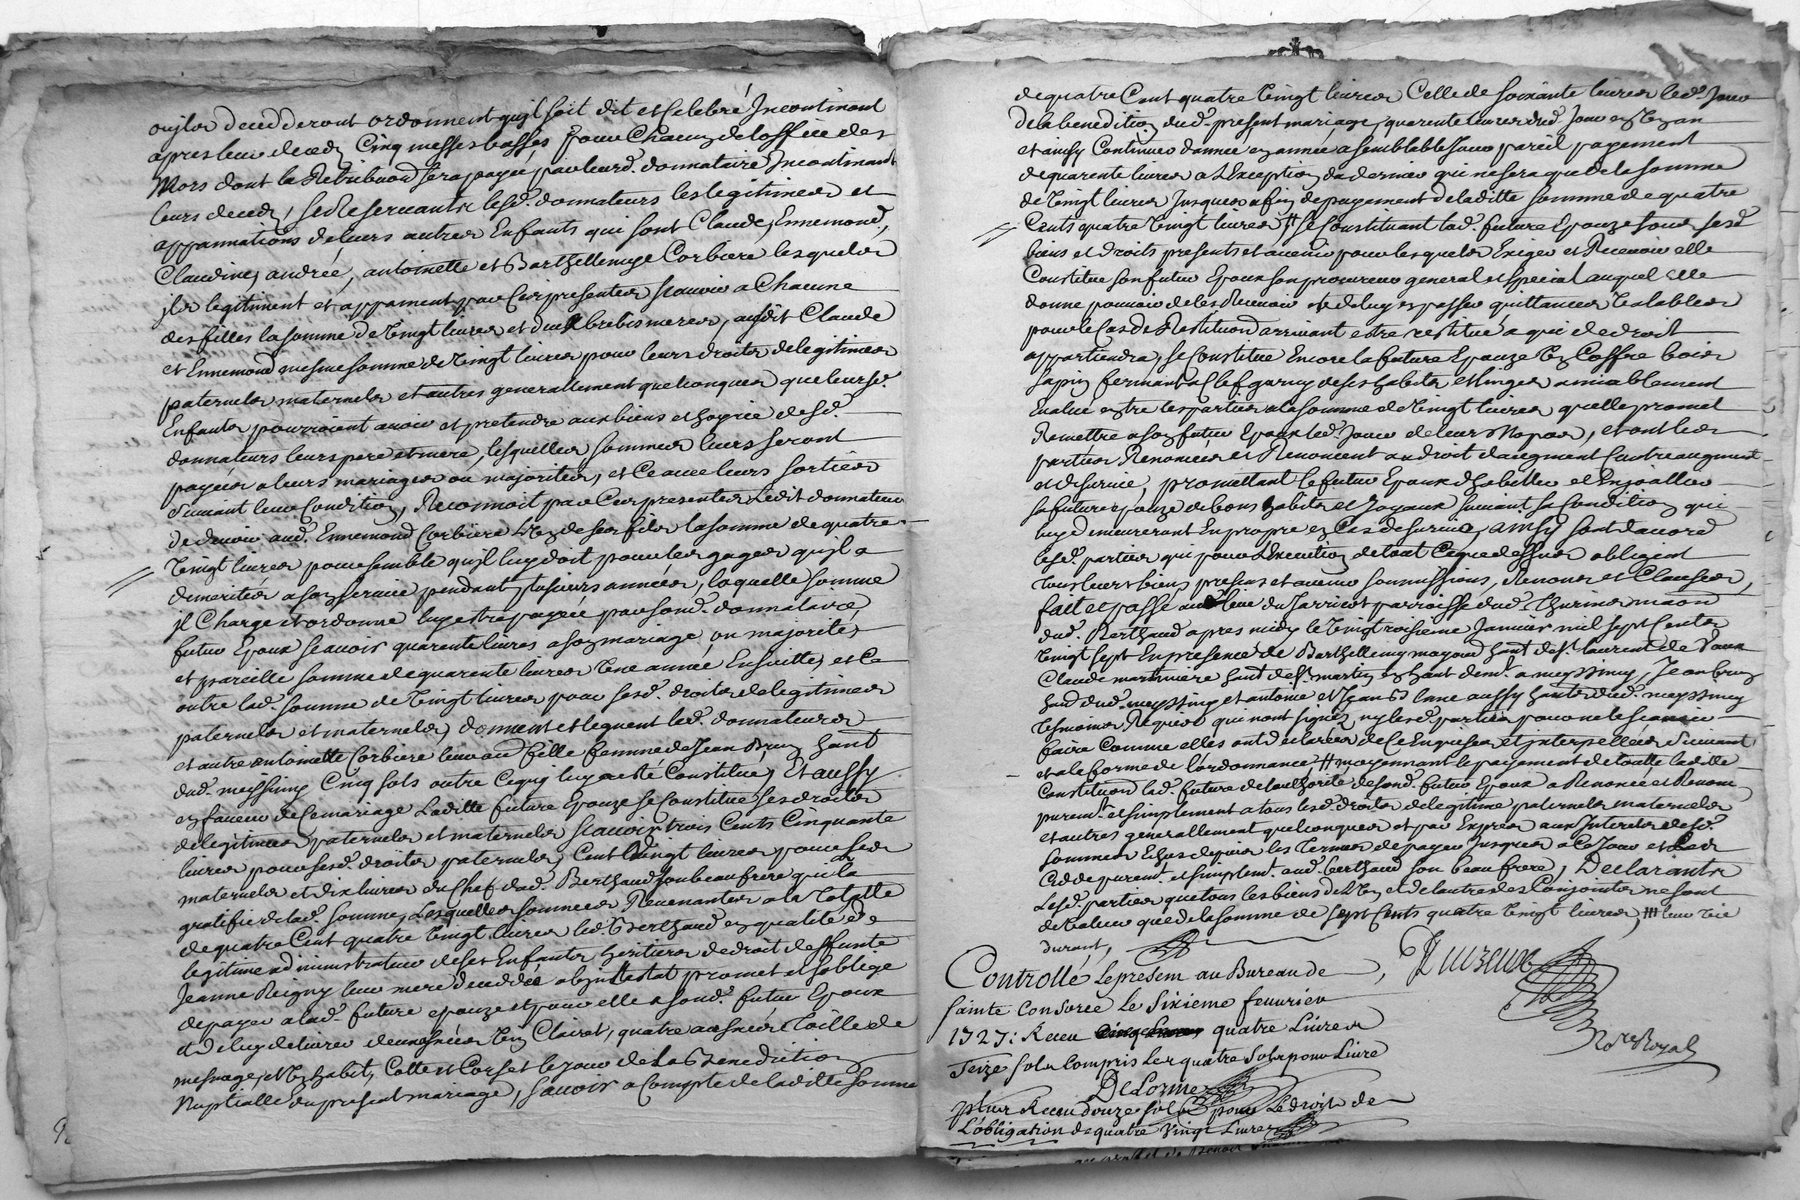 ou jls decedderont ordonnent qujl soit dit et Celebré Jncontinant
apres leur deced Cinq messes basses pour Chacun de loffice des
Mors dont la Retribuon sera payeé par leurd. donnataire Jncontinant
leurs deced, se Reservants lesd. donnateurs les legitimes et
appannations de leurs autres Enfants qui sont Claude, Ennemond,
Claudine, andreé, antoinette et Barthellemye Corbiere lesquels
jls legitiment et appannent par Ces presentes scavoir a Chacune
des filles la somme de Vingt livres et deux brebis meres, audit Claude
et Ennemond mesme somme de Vingt livres pour leurs droits de legitimes
paternels maternels et autres generallement quelconques que leursd.
Enfants pourroient avoir et pretendre aux biens et hoyrie desd.
donnateurs leurs pere et mere, lesquelles sommes leurs seront
payeés a leurs mariages ou majorités, et Ce avec leurs sorties
suivant leur Condition, Reconnoit par Ces presentes ledit donnateur
de devoir aud. Ennemond Corbiere L'un de ses fils la somme de quatre
Vingt livres pour semblable qu'il luy doit pour les gages qu'jl a
demerités a son service pendant plusieurs anneés, laquelle somme
jl Charge et ordonne luy etre payeé par sond. donnataire,
futur Epoux scavoir quarente livres a son mariage ou majorité,
et pareille somme de quarente livres Une anneé Ensuitte, et Ce
outre lad. somme de Vingt livres pour sesd. droits de legitimes
paternels et maternels, donnent et leguent lesd. donnateurs
et autre antoinette Corbiere leur fille femme de Jean Brun hant
dud. meyssimy Cinq sols outre Ce quy luy a eté Constitué, Et aussy
en faveur de Ce mariage Laditte future Epouze se Constitue ses droits
de legitimes paternels et maternels scavoir trois Cents Cinquante
livres pour sesd. droits paternels, Cent Vingt livres pour ses
maternels et dix livres du Chef dud. Berthaud son beau frere qui la
gratifie de lad. somme, Lesquelles sommes Revenantes a la Totalle
de quatre Cent quatre Vingt livres led. Berthaud en qualité de
legitime administrateur de ses Enfants heritiers de droit de deffunte
Jeanne Reigny leur mere decedeé abjntestat promet et s'oblige
de payer a lad. future epouze et pour elle a sond. futur Epoux
et de luy delivrer Clairet, quatre Toille de
mesnage, et Un habit, Cotte et Corset le jour de La Benediction
Nuptialle du present mariage, scavoir a Compte de laditte somme
de quatre Cent quatre Vingt livres Celle de soixante livres led. Jour
de la benediction dud. present mariage, quarente livres dud. Jour en Un an
et ainsy Continuer d'anneé en anneé a semblable Jour pareil payement
de quarente livres a L'Exception du dernier qui ne sera que de la somme
de Vingt livres Jusques a fin de payement de laditte somme de quatre
Cents quatre Vingt livres # se Constituant lad. future Epouze tous sesd.
biens et droits presents et avenir pour lesquels Exiger et Recevoir elle
Constitue son futur Epoux son procureur general et special auquel elle
donne pouvoir de les Recevoir et de luy en passer quittances Valables
pour le Cas de Restituon arrivant estre restitué a qui de droit
appartiendra, se Constitue Encore la future Epouze Un Coffre bois
sapin fermant a Clef garny de ses habits et linges amiablement
Evalué entre les parties a la somme de Vingt livres qu'elle promet
Remettre a son futur Epoux led. Jour de leur Nopces, et ont les
parties Renoncés et Renoncent au droit daugment Contreaugment
et de survie, promettant le futur Epoux d'habiller et Enjoaller
sa future epouze de bons habits et Joyaux suivant sa Condition qui
luy demeureront En propre en Cas de survie, ainsy sont d'acord
lesd. parties qui pour L'Execution de tout Ce que dessus obligent
tous leurs biens presens et avenir soumissions, Renons et Clauses,
fait et passé au lieu du Jarricot parroisse dud. Thurins maon
dud. Berthaud apres midy le Vingt troisieme Janvier mil sept Cents
Vingt sept En presence de Barthellemy mayoud hant de St. laurent de Vaux
Claude marniniere hant de St. martin en hant demt. a meyssimy, Jean brun
hant dud. meyssimy et antoine et Jean Blanc aussy hants dud. meyssimy
Tesmoins Requis qui nont signés ny lesd. parties pour ne le scavoir
faire Comme elles ont declareés de Ce Enquises et jnterpelleés suivant
et a la forme de l'ordonnance # moyennant le payement de toutte laditte
Constituon lad. future de lauthorité de sond. futur Epoux a Renoncé et Renonce
purem. et simplement a tous lesd. droits de legitime paternels maternels
et autres generallement quelconques et par Exprés aux Jnterets desd.
sommes Echus depuis les termes de payer Jusques a Ce Jour et Les
Cede purem. et simplem. aud. berthaud son beau frere, Declarants
Lesd. parties que tous les biens de L'un et de lautre des Conjoints ne sont
de Valeur que de la somme de sept Cents quatre Vingt livres, ### leur Vie
durant,
Controllé Le presem au Bureau de
Sainte Consorce Le Sixieme fevrier
1727: Receu quatre Livres
Seize sols Compris les quatre Sols pour Livre
DeLorme
plus Receu douze sols pour Le droit de
L'obligation de quatre Vingt Livres
Nore Royal